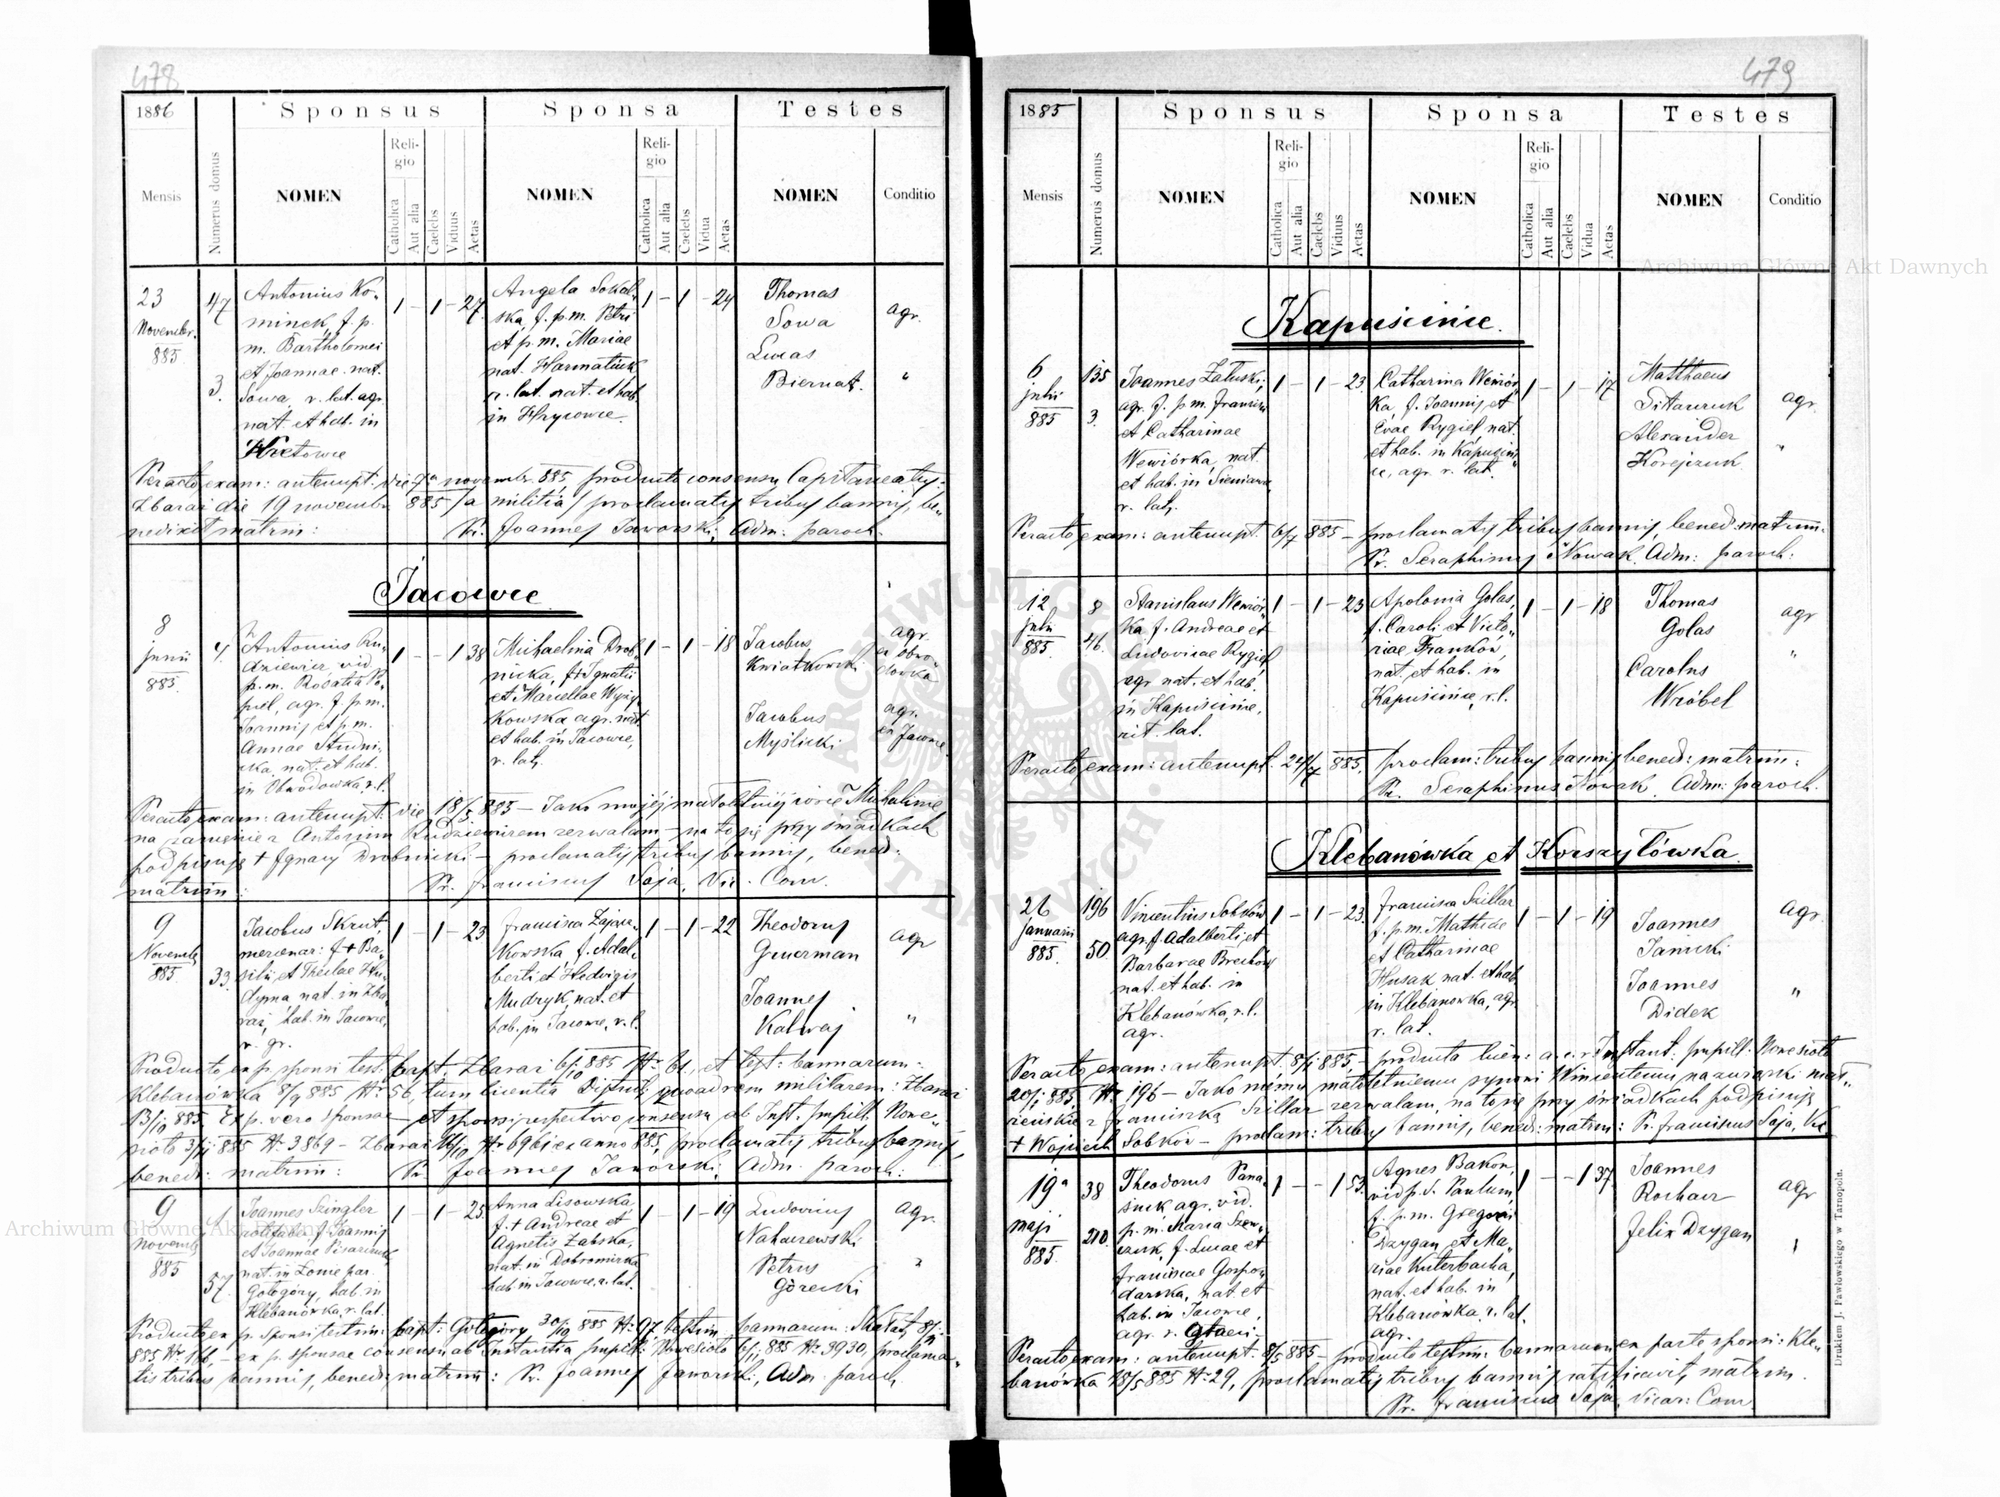 478
1886
Sponsus
Sponsa
Testes
Mensis
Numerus domus
NOMEN
Reli-
gio
Catholica
Aut alia
Caelebs
Viduus
Aetas
NOMEN
Reli-
gio
Catholica
Aut alia
Caelebs
Vidua
Aetas
NOMEN
Conditio
23
Novembr.
885
47
3.
Antonius Ko-
minek, f. p.
m. Bartholomei
et Joannae nat.
Sowa, r. lat. agr.
nat. et hab. in
Kretowce
1 - 1 - 27
Angela Sokal-
ska, f. p.m. Petri
et p.m. Mariae
nat. Harmatiuk
r. lat. nat. et hab.
in Hrycowce
1 - 1 - 24
Thomas
Sowa
Lucas
Biernat.
agr.
"
Peracto exam: antenupt: die novembr. 885 producto consensu Capitaneatus
Zbaraż die 19 novembr 885 /a militia/ proclamatis tribus bannis, be-
nedixit matrim: Pr. Joannes Jaworski, Adm: paroch.
Jacowce
8
junii
885.
4.
Antonius Ru-
dziewicz vid.
p.m. Rosalia Po-
piel, agr. f. p.m.
Joannis et p.m.
Annae Studni-
cka, nat. et hab.
in Obodówka, r.l.
1 - - 1 38
Michaelina Drob-
nicka, f. + Ignatii
et Marcellae Wyży-
kowska agr. nat
et hab. in Jacowce,
r. lat.
1 - 1 - 18
Jacobus
Kwiatkowski
Jacobus
Myślicki
agr.
ex Obo-
dówka
agr.
ex Jacowce
Peracto exam: antenupt: die 18/5 885 - Jako mojéj małoletniéj córce Michalinie
na zamęście z Antonim Rudziewiczem zezwalam - na to się przy świadkach
podpisuję + Ignacy Drobnicki - proclamatis tribus bannis, bened:
matrim: Pr. Franciscus Soja, Vic. Coop.
9
Novembr
885
33.
Jacobus Skrut,
mercenar: f. + Ba-
silii et Theclae Hu-
dyma nat. in Zba-
raż, hab. in Jacowce,
r. gr.
1 - 1 - 23
Francisca Zającz-
kowska, f. Adal-
berti et Hedvigis
Mudryk, nat. et
hab. in Jacowce, r. l.
1 - 1 - 22
Theodorus
Guerman
Joannes
Kalwaj
agr
"
Producto ex p. sponsi test: bapt. Zbaraż 885 et test: bannorum
Klebanówka 8/9 885 Nr 56, tum licentia District. quoad rem militarem: Zbaraż
13/10 885. Ex p. vero sponsae - et sponsi respectivo consensu ab Inst. pupill. Nowe
sioło 885 Nr 3869 - Zbaraż Nr 6961 ex anno 885, proclamatis tribus bannis,
bened: matrim: Pr. Joannes Jaworski, Adm. paroch:
9
novembr
885
57.
Joannes Szingler
f. Joannis
et Joannae Pisarczuk
nat. in Zonie par.
Gołogóry, hab. in
Klebanówka, r. lat.
1 - 1 - 25
Anna Lisowska,
f. + Andreae et
Agnetis Żabska,
nat. in Dobromirka
hab in Jacowce, r. lat.
1 - 1 - 19
Ludovicus
Nahaczewski
Petrus
Górecki
agr.
"
Producto ex p. sponsi testim: bapt: Gołogóry 30/10 885 Nr 97, testim bannorum: Skałat
885 Nr 166, - ex p. sponsae consensu ab Instantia pupill: Nowesioło 885 Nr 3930, proclama-
tis tribus bannis, bened: matrim: Pr. Joannes Jaworski, Adm. paroch.
479
1885
Sponsus
Sponsa
Testes
Mensis
Numerus domus
NOMEN
Reli-
gio
Catholica
Aut alia
Caelebs
Viduus
Aetas
NOMEN
Reli-
gio
Catholica
Aut alia
Caelebs
Vidua
Aetas
NOMEN
Conditio
Kapuscinice.
6
julii
885
135
3.
Joannes Załuski,
agr. f. p.m. Francisci
et Catharinae
Wewiórka, nat.
et hab. in Sieniawa,
r. lat.
1 - 1 - 23
Catharina Wewiór-
ka, f. Joannis et
Evae Rygiel nat.
et hab. in Kapuscin-
ce, agr. r. lat.
1 - 1 - 17
Matthaeus
Sitarczuk
Alexander
Korejczuk
agr.
"
Peracto exam: antenupt. 6/7 885 - proclamatis tribus bannis, bened: matrim:
Pr. Seraphinus Nowak. Adm: paroch:
12
julii
885.
8
46.
Stanislaus Wewiór-
ka f. Andreae et
Ludovicae Rygiel
agr nat. et hab.
in Kapuscince,
rit. lat.
1 - 1 - 23
Apolonia Golas,
f. Caroli et Victo-
riae Franków
nat. et hab. in
Kapuscince, r. l.
1 - 1 - 18
Thomas
Golas
Carolus
Wróbel
agr
"
Peracto exam: antenupt. 885, proclam: tribus bannis bened: matrim:
Pr. Seraphinus Nowak. Adm: paroch.
Klebanówka et Korszyłówka.
26
januarii
885.
196
50.
Vincentius Sobków
agr. f. Adalberti et
Barbarae Breckow
nat. et hab. in
Klebanówka, r. l.
agr.
1 - 1 - 23.
Francisca Szillar
f. p.m. Mathiae
et Catharinae
Husak nat. et hab.
in Klebanówka, agr.
r. lat.
1 - 1 - 19
Joannes
Janicki
Joannes
Didek
agr.
"
Peracto exam: antenupt. 8/1 885, - producta licen: a. c. r. Instant: pupill. Nowesioło
20/1 885, Nr 196 - Jako mému małoletniemu synowi Wincentemu na związki mał-
żeńskie z Franciszką Szillar zezwalam, na to się przy świadkach podpisuję
+ Wojciech Sobków - proclam: tribus bannis, bened: matrim: Pr. Franciscus Soja, Vic
19a
maji
885.
38
210.
Theodorus Pana-
siuk agr. vid.
p. m. Maria Szew-
czuk, f. Lucae et
Franciscae Gospo-
darska, nat. et
hab. in Jacowce,
agr. r. graeci
1 - - 1 53.
Agnes Bakon,
vid p. d. Paulum,
f. p.m. Gregorii
Dzygan et Ma-
riae Kuterbacha,
nat. et hab. in
Klebanówka, r. lat.
agr.
1 - - 1 37
Joannes
Rochacz
Felix Dzygan
agr
Peracto exam: antenupt. 8/5 885 - producto testim: bannorum ex parte sponsi: Kle-
banówka 18/5 885 Nr 29, proclamatis tribus bannis ratificavit, matrim.
Pr. Franciscus Soja, Vicar: Coop
Drukiem J. Pawłowskiego w Tarnopolu.
Archiwum Główne Akt Dawnych
Archiwum Główne Akt Dawnych